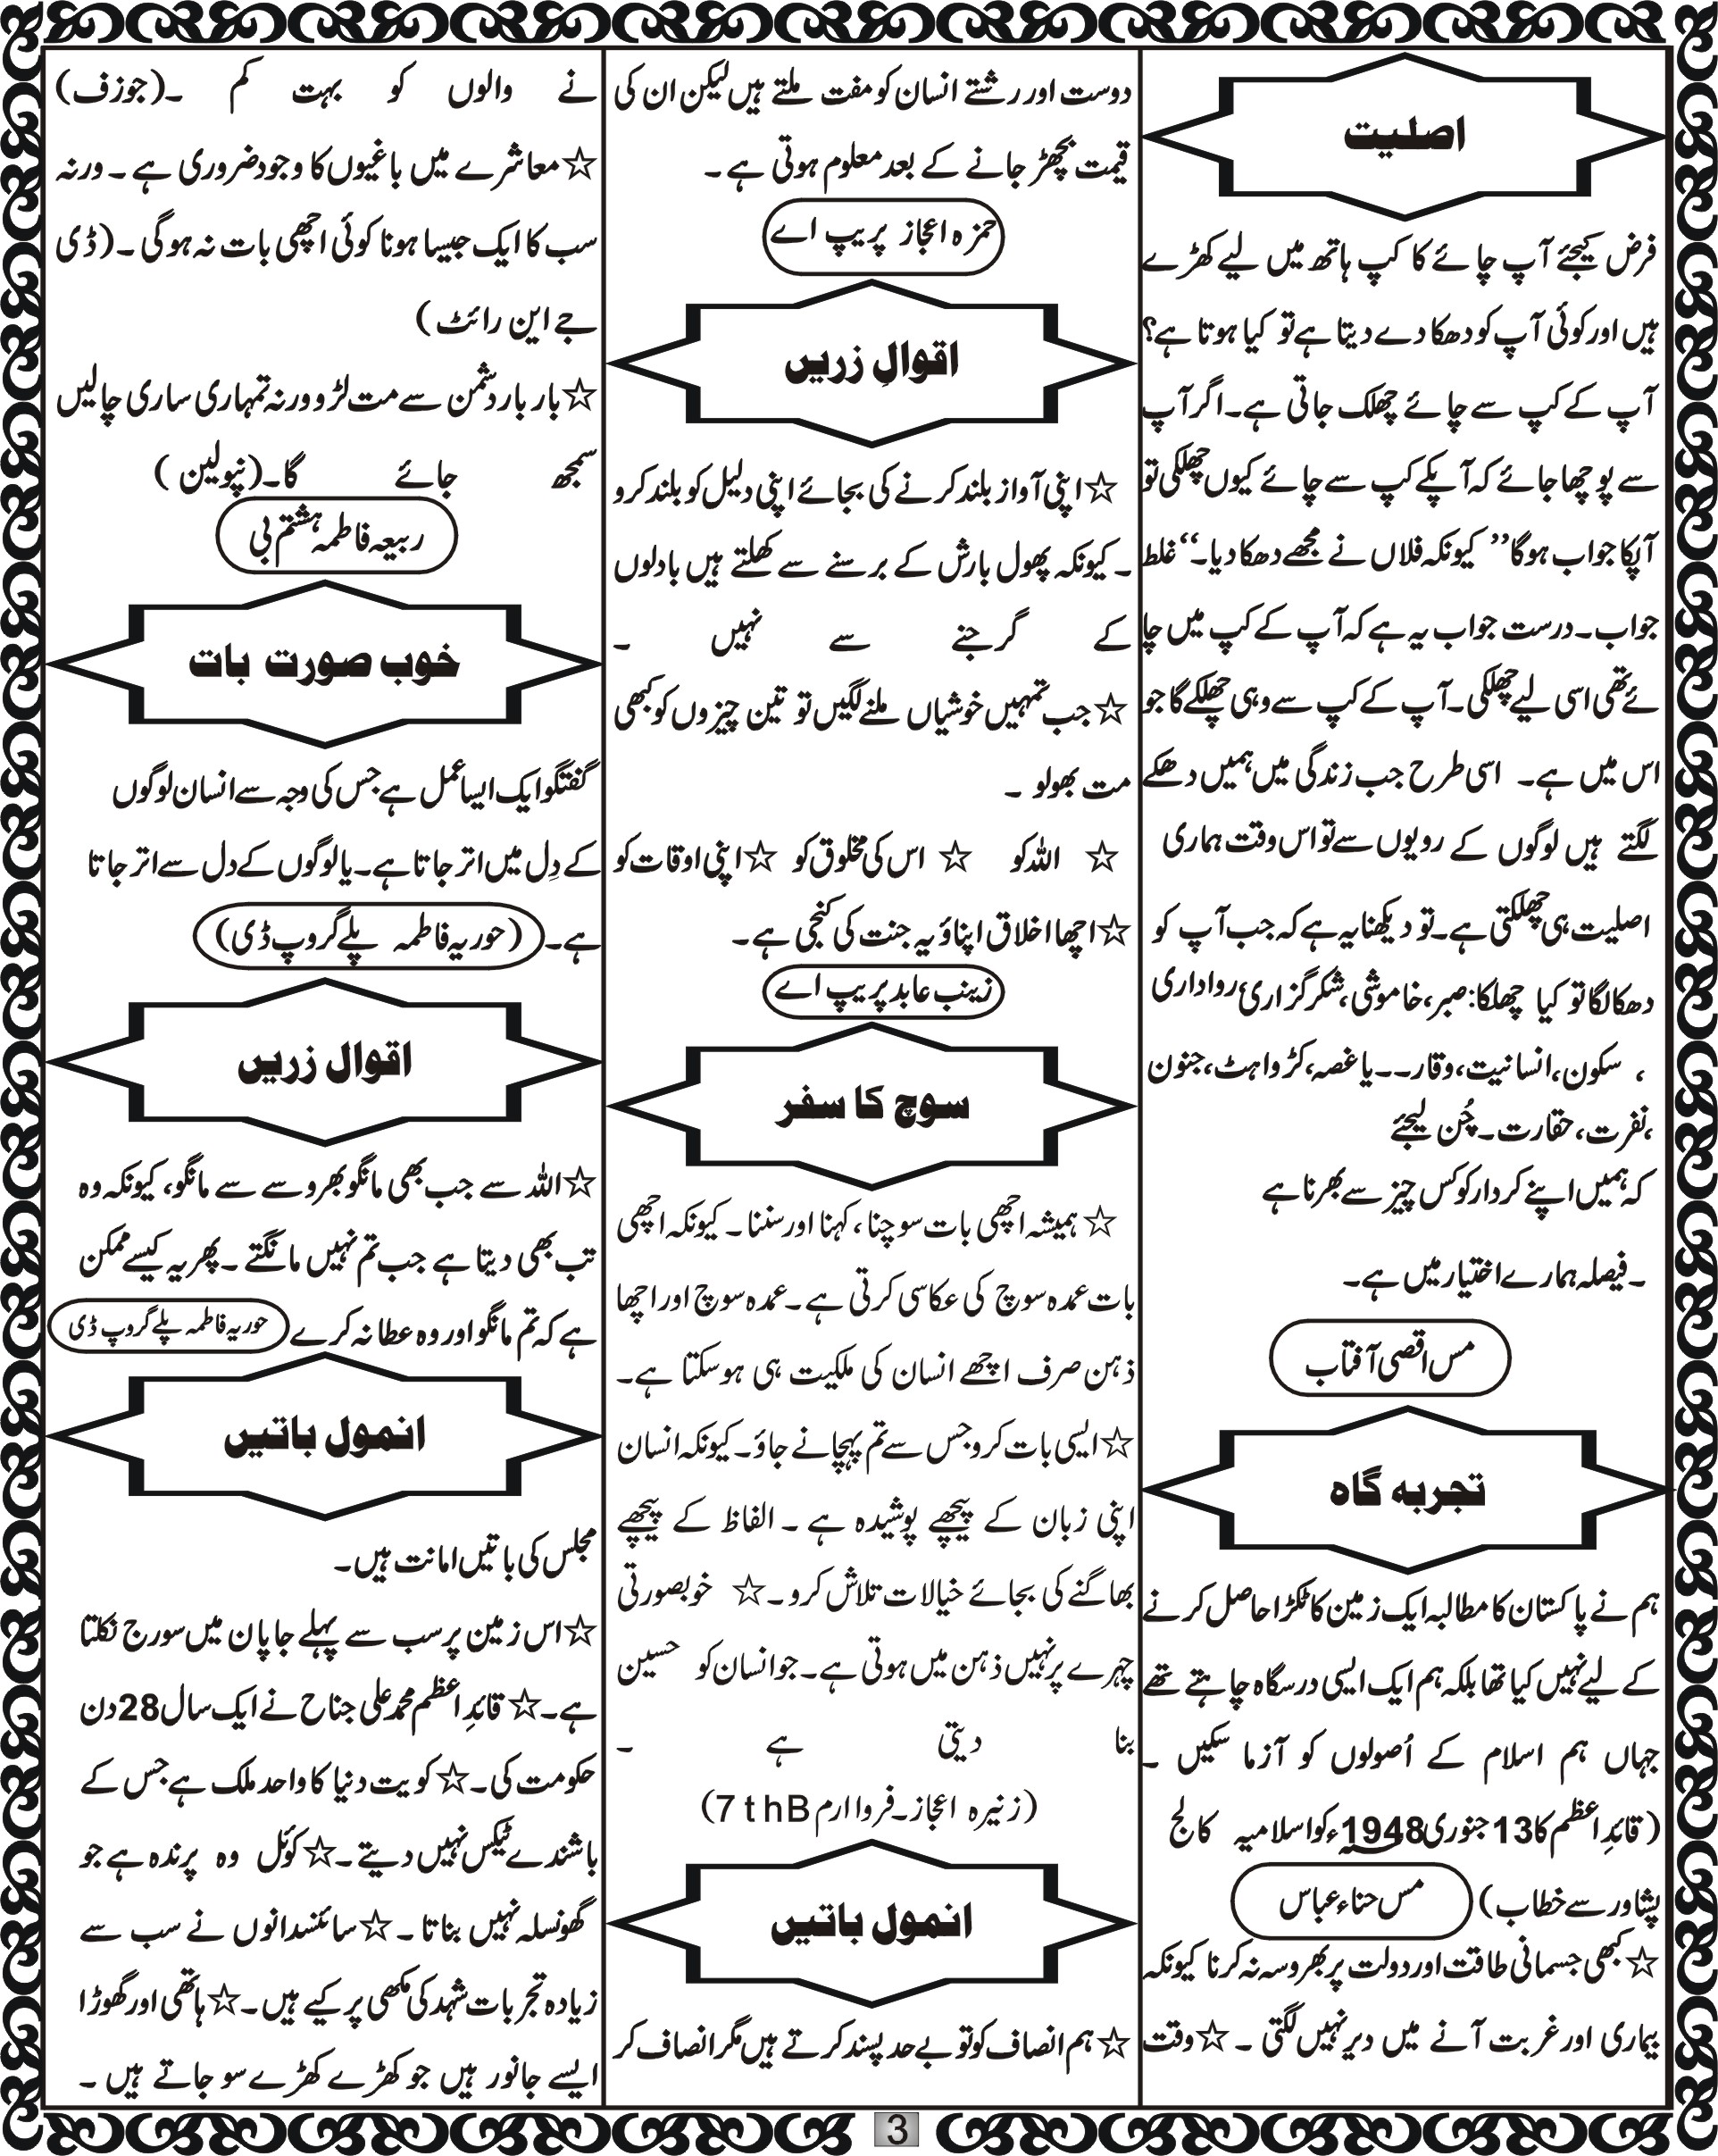 اصلیت
فرض کیجئے آپ چائے کا کپ ہاتھ میں لیے کھڑے
ہیں اور کوئی آپ کو دھکا دے دیتا ہے تو کیا ہوتا ہے؟
آپ کے کپ سے چائے چھلک جاتی ہے۔ اگر آپ
سے پوچھا جائے کہ آپکے کپ سے چائے کیوں چھلکی تو
آپکا جواب ہوگا ’’ کیونکہ فلاں نے مجھے دھکا دیا۔‘‘ غلط
جواب۔ درست جواب یہ ہے کہ آپ کے کپ میں چا
ئے تھی اسی لیے چھلکی۔ آپ کے کپ سے وہی چھلکے گا جو
اس میں ہے۔ اسی طرح جب زندگی میں ہمیں دھکے
لگتے ہیں لوگوں کے رویوں سے تو اس وقت ہماری
اصلیت ہی چھلکتی ہے۔ تو دیکھنا یہ ہے کہ جب آپ کو
دھکا لگا تو کیا چھلکا: صبر، خاموشی، شکرگزاری، رواداری
، سکون، انسانیت، وقار۔۔ یا غصہ، کڑواہٹ، جنون
،نفرت، حقارت۔ چُن لیجئے
کہ ہمیں اپنے کردار کو کس چیز سے بھرنا ہے
۔ فیصلہ ہمارے اختیار میں ہے۔
مس اقصی آفتاب
تجربہ گاہ
ہم نے پاکستان کا مطالبہ ایک زمین کا ٹکڑا حاصل کرنے
کے لیے نہیں کیا تھا بلکہ ہم ایک ایسی درسگاہ چاہتے تھے
جہاں ہم اسلام کے اُصولوں کو آزما سکیں ۔
( قائدِ اعظم کا 13 جنوری 1948ء کو اسلامیہ کالج
پشاور سے خطاب ) مس حناء عباس
☆ کبھی جسمانی طاقت اور دولت پر بھروسہ نہ کرنا کیونکہ
بیماری اور غربت آنے میں دیر نہیں لگتی ۔ ☆ وقت
دوست اور رشتے انسان کو مفت ملتے ہیں لیکن ان کی
قیمت بچھڑ جانے کے بعد معلوم ہوتی ہے ۔
حمزہ اعجاز پریپ اے
اقوالِ زریں
☆ اپنی آواز بلند کرنے کی بجائے اپنی دلیل کو بلند کرو
۔ کیونکہ پھول بارش کے برسنے سے کھلتے ہیں بادلوں
کے گرجنے سے نہیں ۔
☆ جب تمہیں خوشیاں ملنے لگیں تو تین چیزوں کو کبھی
مت بھولو ۔
☆ اللہ کو ☆ اس کی مخلوق کو ☆ اپنی اوقات کو
☆ اچھا اخلاق اپناؤ یہ جنت کی کنجی ہے ۔
زینب عابد پریپ اے
سوچ کا سفر
☆ ہمیشہ اچھی بات سوچنا ، کہنا اور سننا ۔ کیونکہ اچھی
بات عمدہ سوچ کی عکاسی کرتی ہے ۔ عمدہ سوچ اور اچھا
ذہن صرف اچھے انسان کی ملکیت ہی ہو سکتا ہے۔
☆ ایسی بات کرو جس سے تم پہچانے جاؤ۔ کیونکہ انسان
اپنی زبان کے پیچھے پوشیدہ ہے ۔ الفاظ کے پیچھے
بھاگنے کی بجائے خیالات تلاش کرو ۔ ☆ خوبصورتی
چہرے پر نہیں ذہن میں ہوتی ہے ۔ جو انسان کو حسین
بنا دیتی ہے ۔
(زنیرہ اعجاز۔ فروا ارم 7thB)
انمول باتیں
☆ ہم انصاف کو تو بے حد پسند کرتے ہیں مگر انصاف کر
نے والوں کو بہت کم ۔ (جوزف)
☆ معاشرے میں باغیوں کا وجود ضروری ہے ۔ ورنہ
سب کا ایک جیسا ہونا کوئی اچھی بات نہ ہوگی ۔ ( ڈی
جے این رائٹ )
☆ بار بار دشمن سے مت لڑو ورنہ تمہاری ساری چالیں
سمجھ جائے گا۔ (نپولین )
ربیعہ فاطمہ ہشتم بی
خوب صورت بات
گفتگو ایک ایسا عمل ہے جس کی وجہ سے انسان لوگوں
کے دِل میں اتر جاتا ہے۔ یا لوگوں کے دل سے اتر جاتا
ہے۔ (حوریہ فاطمہ پلے گروپ ڈی)
اقوال زریں
☆ اللہ سے جب بھی مانگو بھروسے سے مانگو، کیونکہ وہ
تب بھی دیتا ہے جب تم نہیں مانگتے ۔ پھر یہ کیسے ممکن
ہے کہ تم مانگو اور وہ عطا نہ کرے حوریہ فاطمہ پلے گروپ ڈی
انمول باتیں
مجلس کی باتیں امانت ہیں۔
☆ اس زمین پر سب سے پہلے جاپان میں سورج نکلتا
ہے۔ ☆ قائدِ اعظم محمد علی جناح نے ایک سال 28 دن
حکومت کی۔ ☆ کویت دنیا کا واحد ملک ہے جس کے
باشندے ٹیکس نہیں دیتے ۔ ☆ کوئل وہ پرندہ ہے جو
گھونسلہ نہیں بناتا ۔ ☆ سائنسدانوں نے سب سے
زیادہ تجربات شہد کی مکھی پر کیے ہیں۔ ☆ ہاتھی اور گھوڑا
ایسے جانور ہیں جو کھڑے کھڑے سو جاتے ہیں ۔
3